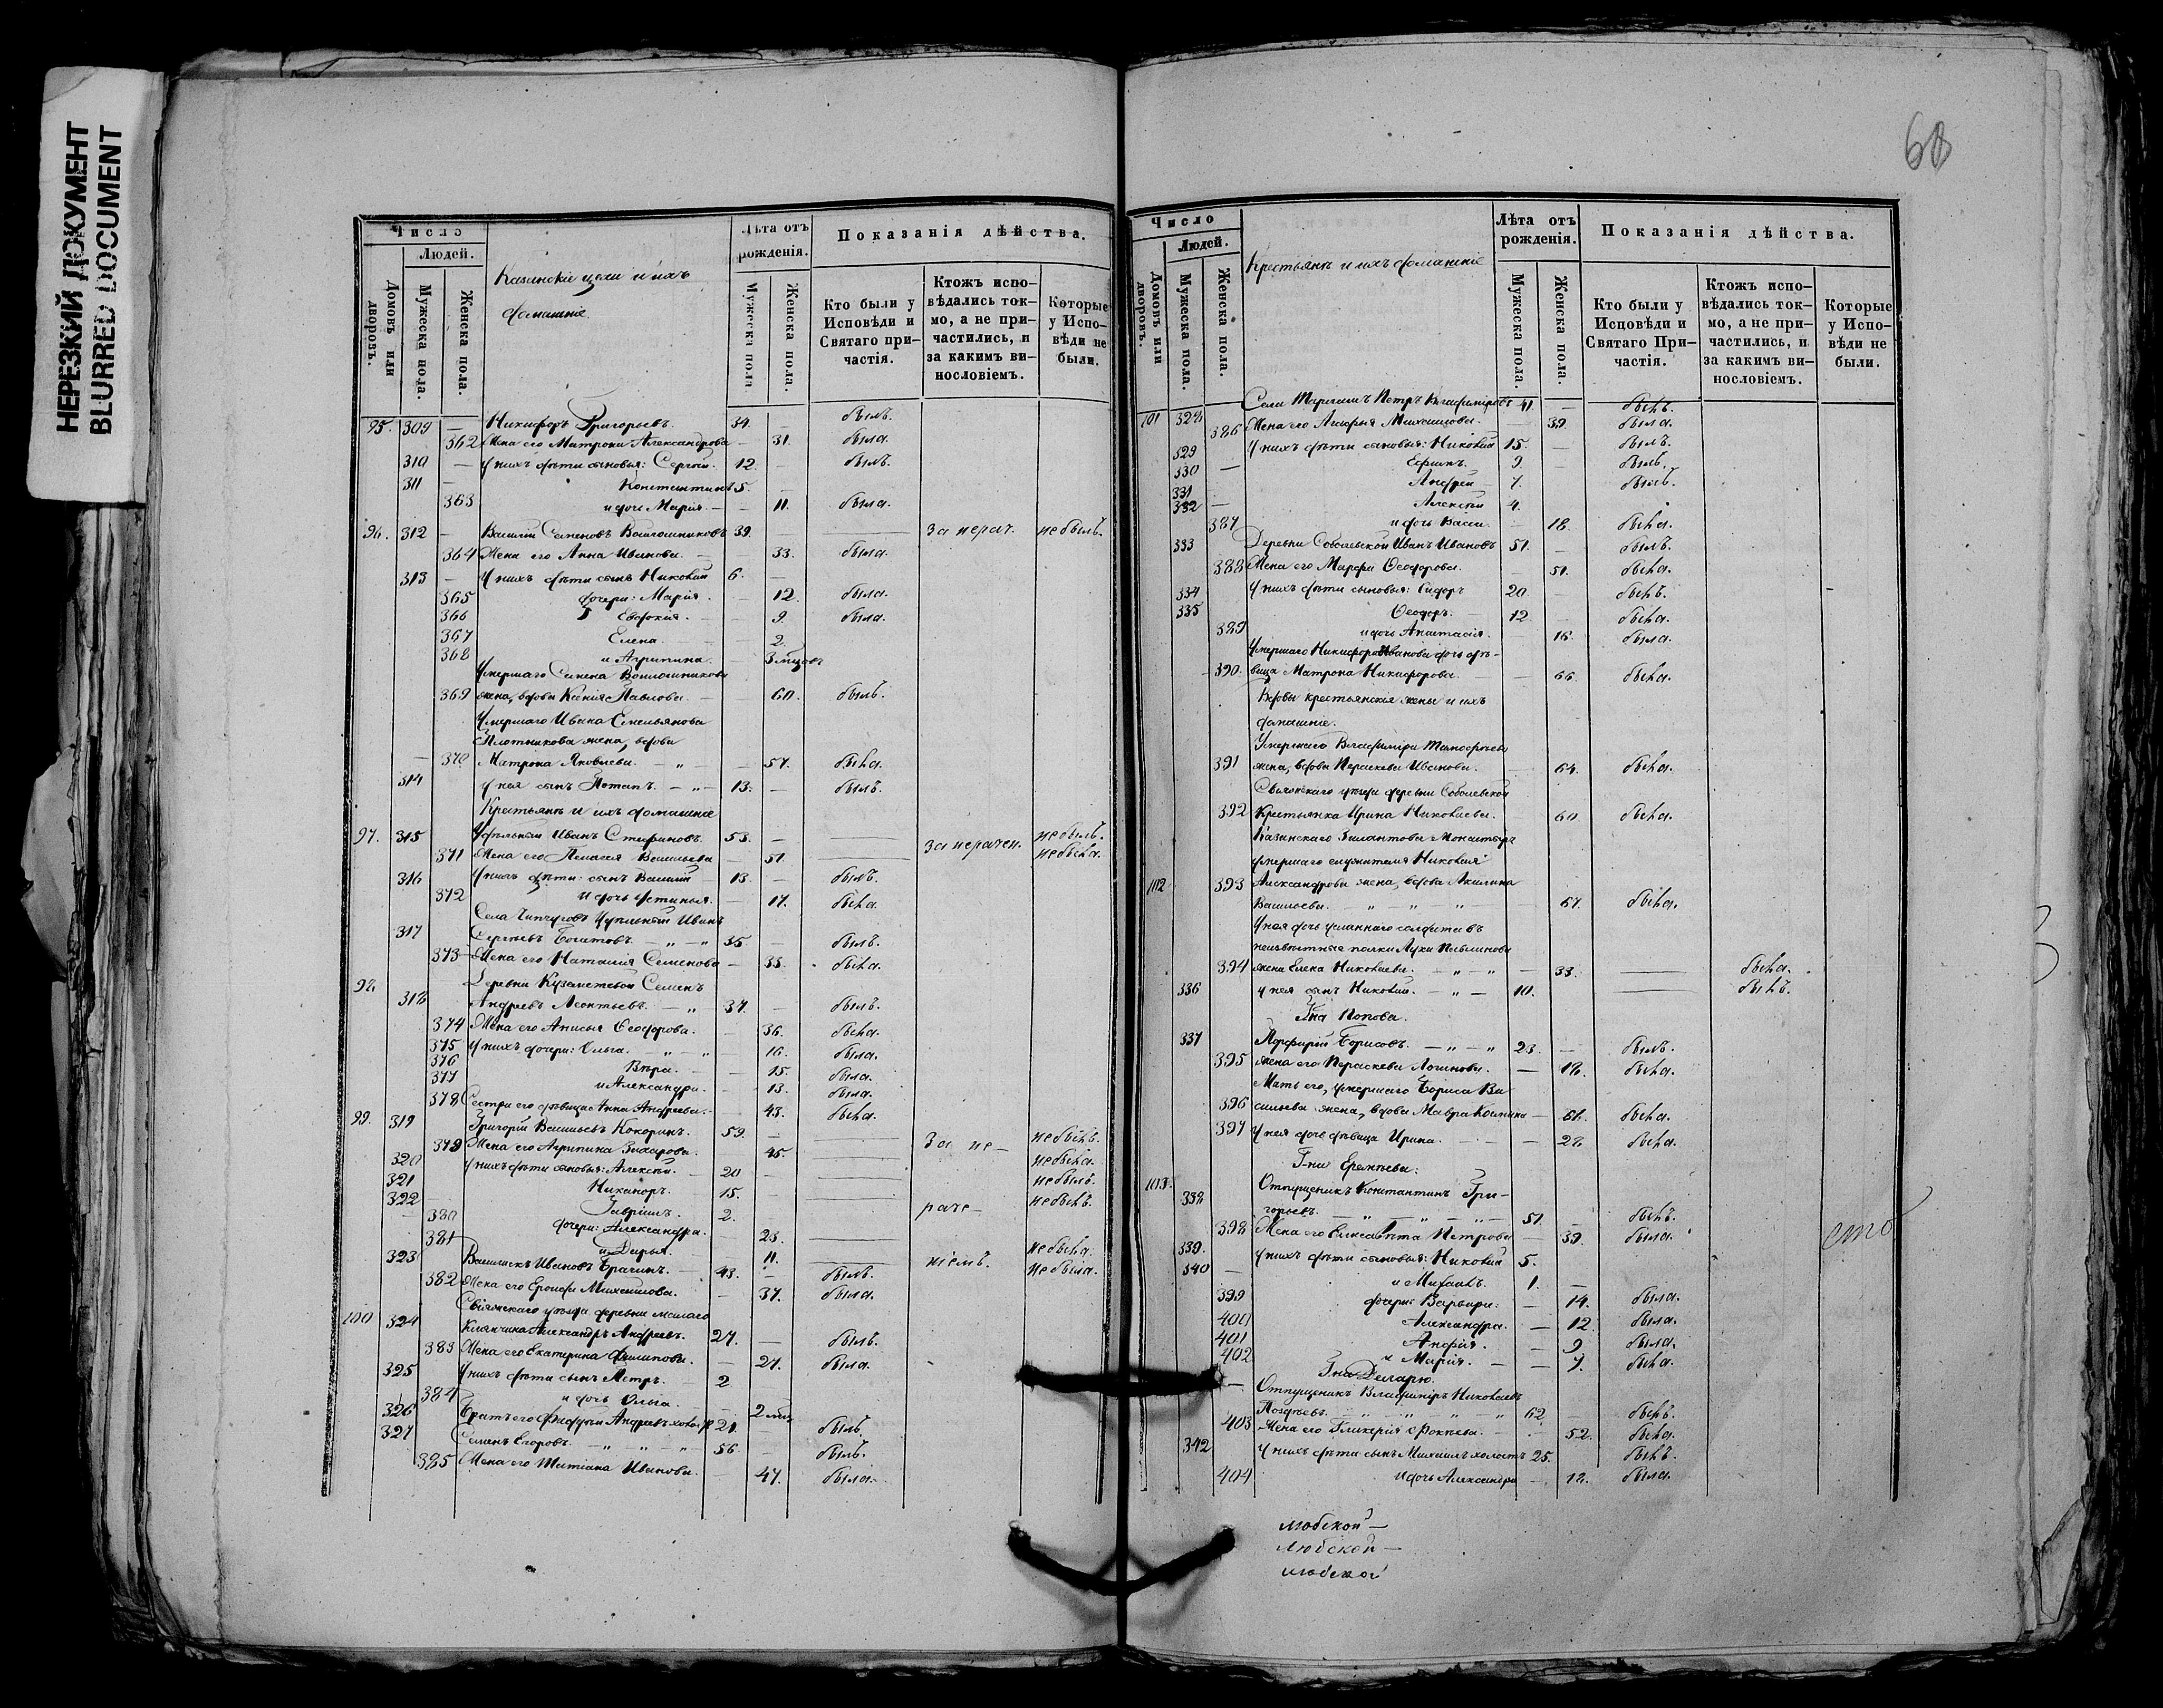 НЕРЕЗКИЙ ДОКУМЕНТ
BLURRED DOCUMENT
Число
Людей.
Домовъ или дворовъ.
Мужеска пола.
Женска пола.
Казанскіе цехи и ихъ
домашніе.
Лѣта отъ рожденія.
Мужеска пола
Женска пола.
Показанія дѣйства.
Кто были у Исповѣди и Святаго причастія.
Ктожъ исповѣдались токмо, а не причастились, и за какимъ винословіемъ.
Которые у Исповѣди не были.
95. 309 — Никифоръ Григорьевъ. 34. — былъ.
362 Жена его Матрона Александрова — 31. была.
310 — У нихъ дѣти сыновья: Сергѣй. 12. — былъ.
311 — Константинъ 5. —
363 и дочь Марія. — — 11. была.
96. 312 — Василій Семеновъ 39. — за нерач. не былъ.
364 Жена его Анна Иванова. — 33. была.
313 — У нихъ дѣти сынъ Николай 6. —
365 дочери: Марія. — 12. была.
366 Евдокія. — 9. была.
367 Елена. — 2.
368 и Агрипина. — 3 мѣсяц.
Умершаго Семена
369 жена, вдова Ксенія Павлова. — 60. былъ.
Умершаго Ивана Емельянова
Плотникова жена, вдова
370 Матрона Яковлева. — „ — 57. была.
314 у нея сынъ Потапъ. — „ — 13. — былъ.
Крестьяне и ихъ домашніе
97. 315 Удѣльный Иванъ Стефановъ. 53. — не былъ.
371 Жена его Пелагея Васильева — 51. за нерачен. не была.
316 У нихъ дѣти: сынъ Василій — 13. — былъ.
372 и дочь Устинья. — 17. была.
Села Иванъ
317 Сергѣевъ Богатовъ. — „ — „ 35 — былъ.
373 Жена его Наталія Семенова — 33. была.
98. Деревни Семенъ
318 Андреевъ Леонтьевъ. — „ 37. — былъ.
374 Жена его Анисья Ѳеодорова. — 36. была.
375 У нихъ дочери: Ольга. — „ — „ — 16. была.
376 Вѣра. — — 15. была.
377 и Александра. — 13. была.
378 Сестра его дѣвица Анна Андреева. — 43. была.
99. 319 Григорій Васильевъ Кокоринъ. 59. — не былъ.
379 Жена его Агрипина Захарова. — 45. За не- не была.
320 У нихъ дѣти сыновья: Алексѣй. — 20 — не былъ.
321 Никаноръ. 15. не былъ.
322 Гавріилъ. 2. раче-
380 дочери: Александра. — 23. не была.
381 и Дарья. 11. ніемъ. не была.
323 Иванъ Брагинъ. — 43. — былъ.
382 Жена его Михайлова. — 37. была.
Свіяжскаго уѣзда деревни малаго
100 324 Александръ Андреевъ. 27. — былъ.
383 Жена его Екатерина Филипова. — 27. была.
325 У нихъ дѣти сынъ Петръ. — 2
384 и дочь Ольга. — 2 мѣс.
326 Братъ его Андреевъ 21. — былъ.
327 Семенъ Егоровъ. — „ — „ — „ 56. былъ.
385 Жена его Татіана Иванова. — 47. была.
68
Число
Людей.
Домовъ или дворовъ.
Мужеска пола.
Женска пола.
Крестьяне и ихъ домашніе
Лѣта отъ рожденія.
Мужеска пола.
Женска пола.
Показанія дѣйства.
Кто были у Исповѣди и Святаго Причастія.
Ктожъ исповѣдались токмо, а не причастились, и за какимъ винословіемъ.
Которые у Исповѣди не были.
101 328 Села Петръ Владиміровъ 41. — былъ.
386 Жена его Михаилова. — 39. была.
329 У нихъ дѣти сыновья: Николай 15. — былъ.
330 — Ефимъ. 9. — былъ.
331 Андрей — 7. былъ.
332 — Алексѣй 4.
387 и дочь Васса. — 18. была.
333 Деревни Соболевской Иванъ Ивановъ 51. — былъ.
388 Жена его Марфа Ѳеодорова. — 51. была.
334 У нихъ дѣти сыновья: Сидоръ 20. — былъ.
335 Ѳеодоръ. — 12. — была.
389 и дочь Анастасія. — 16. была.
Умершаго Никифора Иванова дочь дѣ-
390. вица Матрона Никифорова. — 66. была.
Вдовы крестьянскія жены и ихъ
домашніе.
Умершаго Владиміра Тимофѣева
391 жена, вдова Параскева Иванова. — 64. была.
Свіяжскаго уѣзда деревни Соболевской
392 Крестьянка Ирина Николаева. — 60 была.
Казанскаго Зилантова Монастыря
умершаго служителя Николая
102 393 Александрова жена, вдова Акилина
Васильева. — „ — „ — „ 67. была.
У нея дочь солдата въ
неизвѣстные полки Луки
394 жена Елена Николаева. — „ — „ — 33. была.
336 у нея сынъ Николай. — „ — 10. былъ.
Г-на Попова.
337 Порфирій Борисовъ. — „ — „ 23. — былъ.
395 жена его Параскева Логинова. — 18. была.
Мать его, умершаго Бориса Ва-
396 сильева жена, вдова Мавра — 61. была.
397 У нея дочь дѣвица Ирина. — — 28. была.
Г-на
103. 338 Отпущеникъ Константинъ Гри-
горьевъ. — „ — „ — „ 51. — былъ.
398 Жена его Елисавета Петрова — 39. была.
339. У нихъ дѣти сыновья: Николай 5.
340 — и Михаилъ. 1. —
399 дочери: Варвара. — 14. была.
400 Александра. — 12. была.
401 — 9 была.
402 и Марія. — — 7. была.
Г-на Деларю.
Отпущеникъ Владиміръ Николаевъ
62. — былъ.
403 Жена его Гликерія — 52. была.
342 У нихъ дѣти сынъ Михаилъ холостъ 25. былъ.
404 и дочь Александра — 18. была.
любской —
любской —
любской